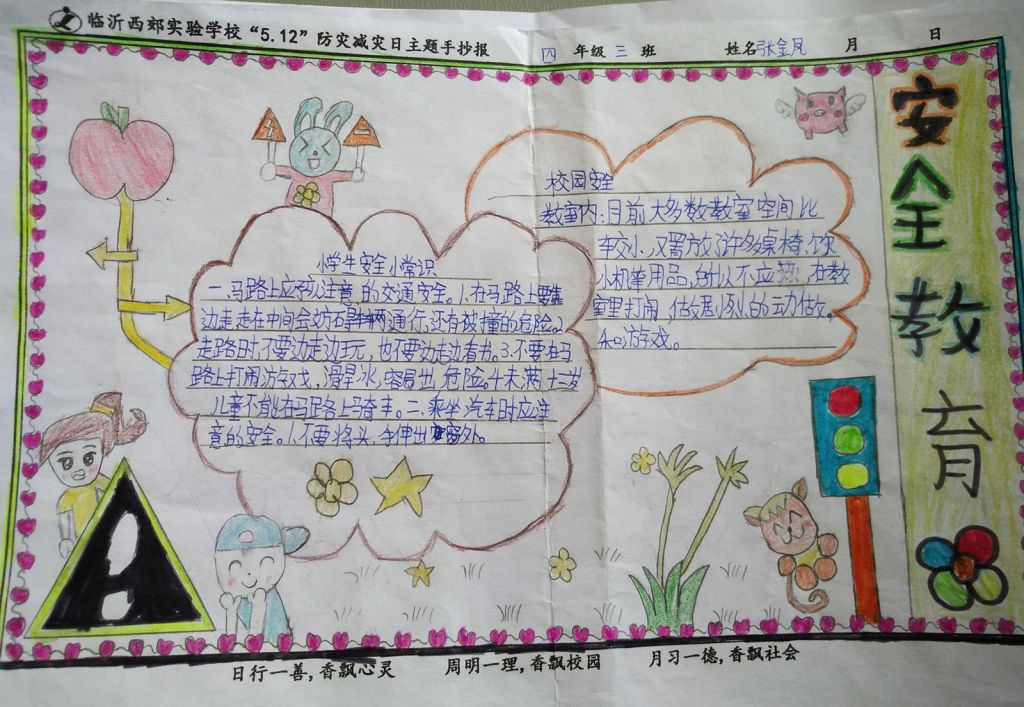 临沂西郊实验学校“5.12”防灾减灾日主题手抄报 四 年级 三 班 姓名张金凤 月 日
安全教育
校园安全
教室内:目前大多数教室空间比
较小,又置放了许多桌椅、饮
水机等用品,所以不应 在教
室里打闹,做剧烈的运动做。
和游戏。
小学生安全小常识
一、马路上应该注意的交通安全。1.在马路上要靠
边走,走在中间会妨碍车辆通行,还有被撞的危险。
走路时不要边走边玩,也不要边走边看书。3.不要在马
路上打闹游戏,滑旱冰,容易出危险。4未满十二岁
儿童不能在马路上骑车。二、乘坐汽车时应注
意的安全。1.不要将头、手伸出窗外。
日行一善,香飘心灵 周明一理,香飘校园 月习一德,香飘社会